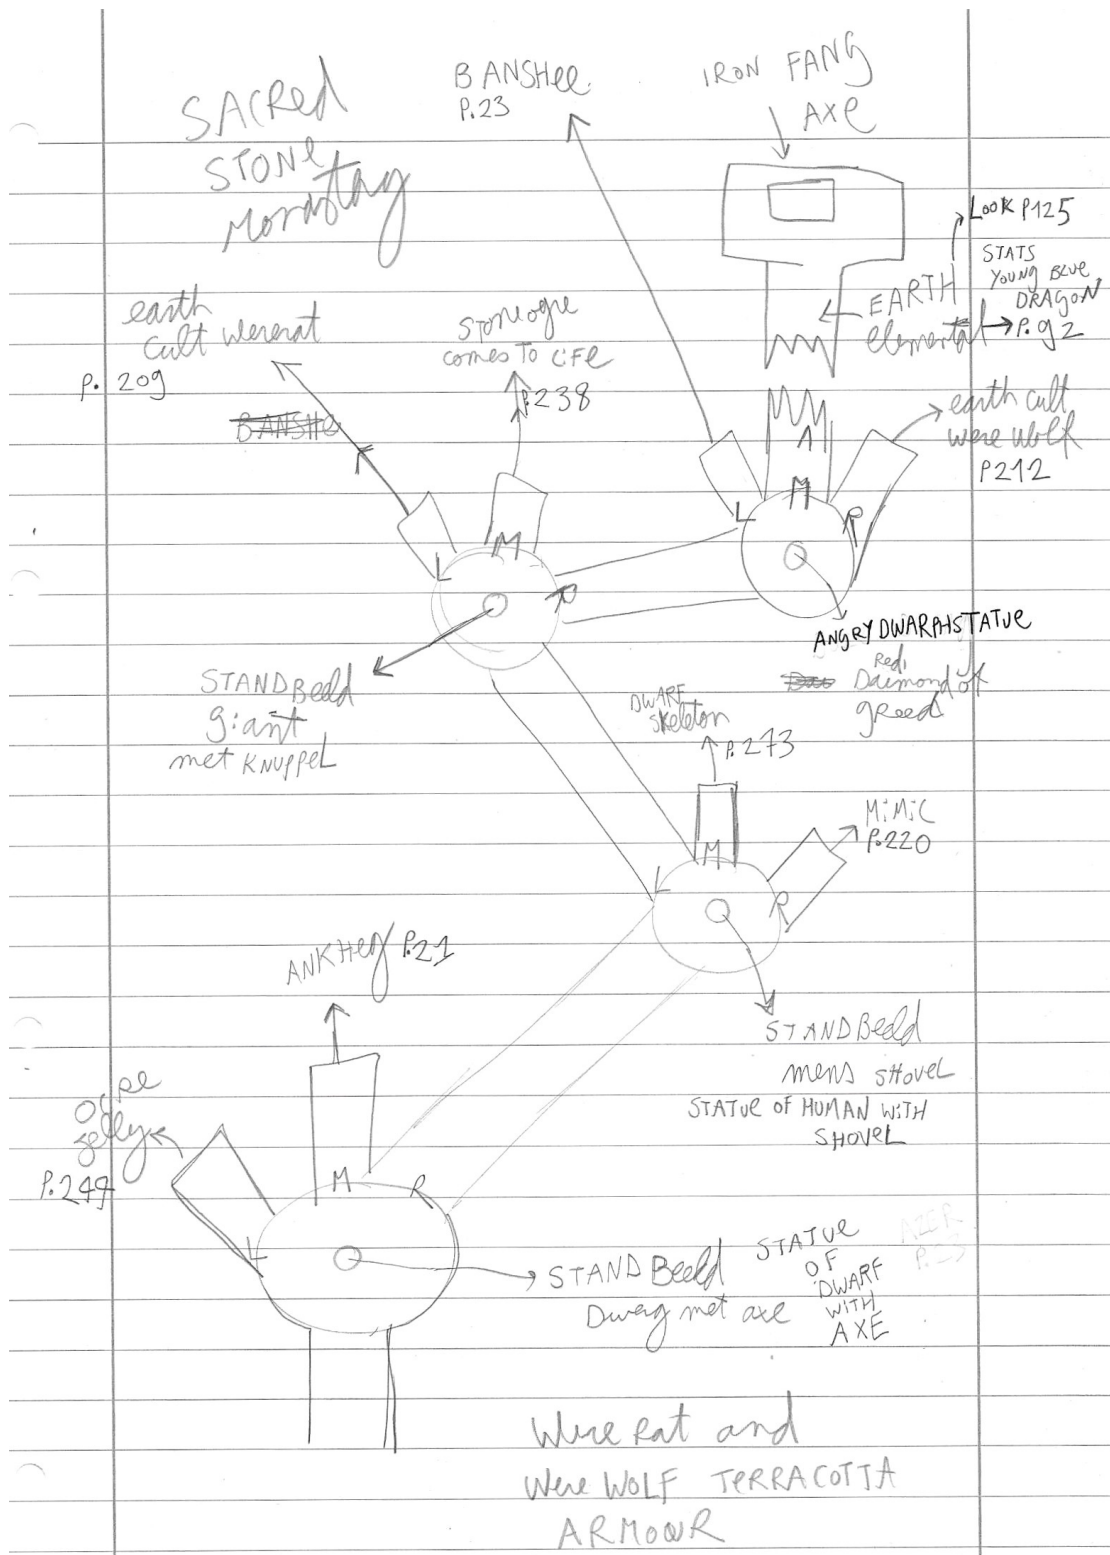 SACRed
STONe
Monastay
BANSHee.
P.23
IRON FANG
AXe
Look P125
STATS
YOUNG BLUe
DRAGON
P.92
EARTH
elemental
earth
cult wererat
P. 209
BANSHe
Stoneogre
comes to life
P.238
earth cult
were wolf
P212
L
M
R
L
M
R
ANGRY DWARPH STATUe
Red
Daimond of
greed
STANDBeeld
giant
met KNUPPeL
DWARF
Skeleton
P.273
MiMiC
P.220
L
M
R
ANKHeg P.21
STANDBeeld
mens SHoveL
STATUe oF HUMAN WiTH
SHOVeL
jelly
P.249
L
M
R
STANDBeeld
Dwerg met axe
STATUe
OF
DWARF
WITH
AXE
AZER
Were Rat and
Were WOLF TeRRACOTTA
ARMOUR